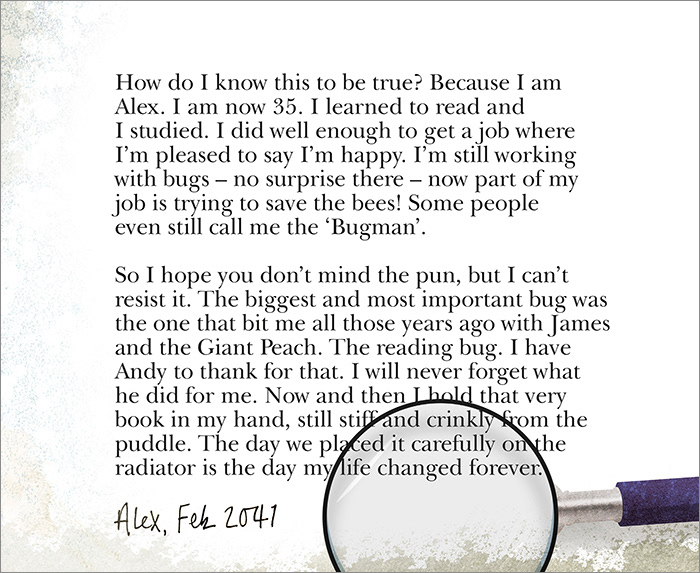 How do I know this to be true? Because I am
Alex. I am now 35. I learned to read and
I studied. I did well enough to get a job where
I’m pleased to say I’m happy. I’m still working
with bugs – no surprise there – now part of my
job is trying to save the bees! Some people
even still call me the ‘Bugman’.
So I hope you don’t mind the pun, but I can’t
resist it. The biggest and most important bug was
the one that bit me all those years ago with James
and the Giant Peach. The reading bug. I have
Andy to thank for that. I will never forget what
he did for me. Now and then I hold that very
book in my hand, still stiff and crinkly from the
puddle. The day we placed it carefully on the
radiator is the day my life changed forever.
Alex, Feb 2041